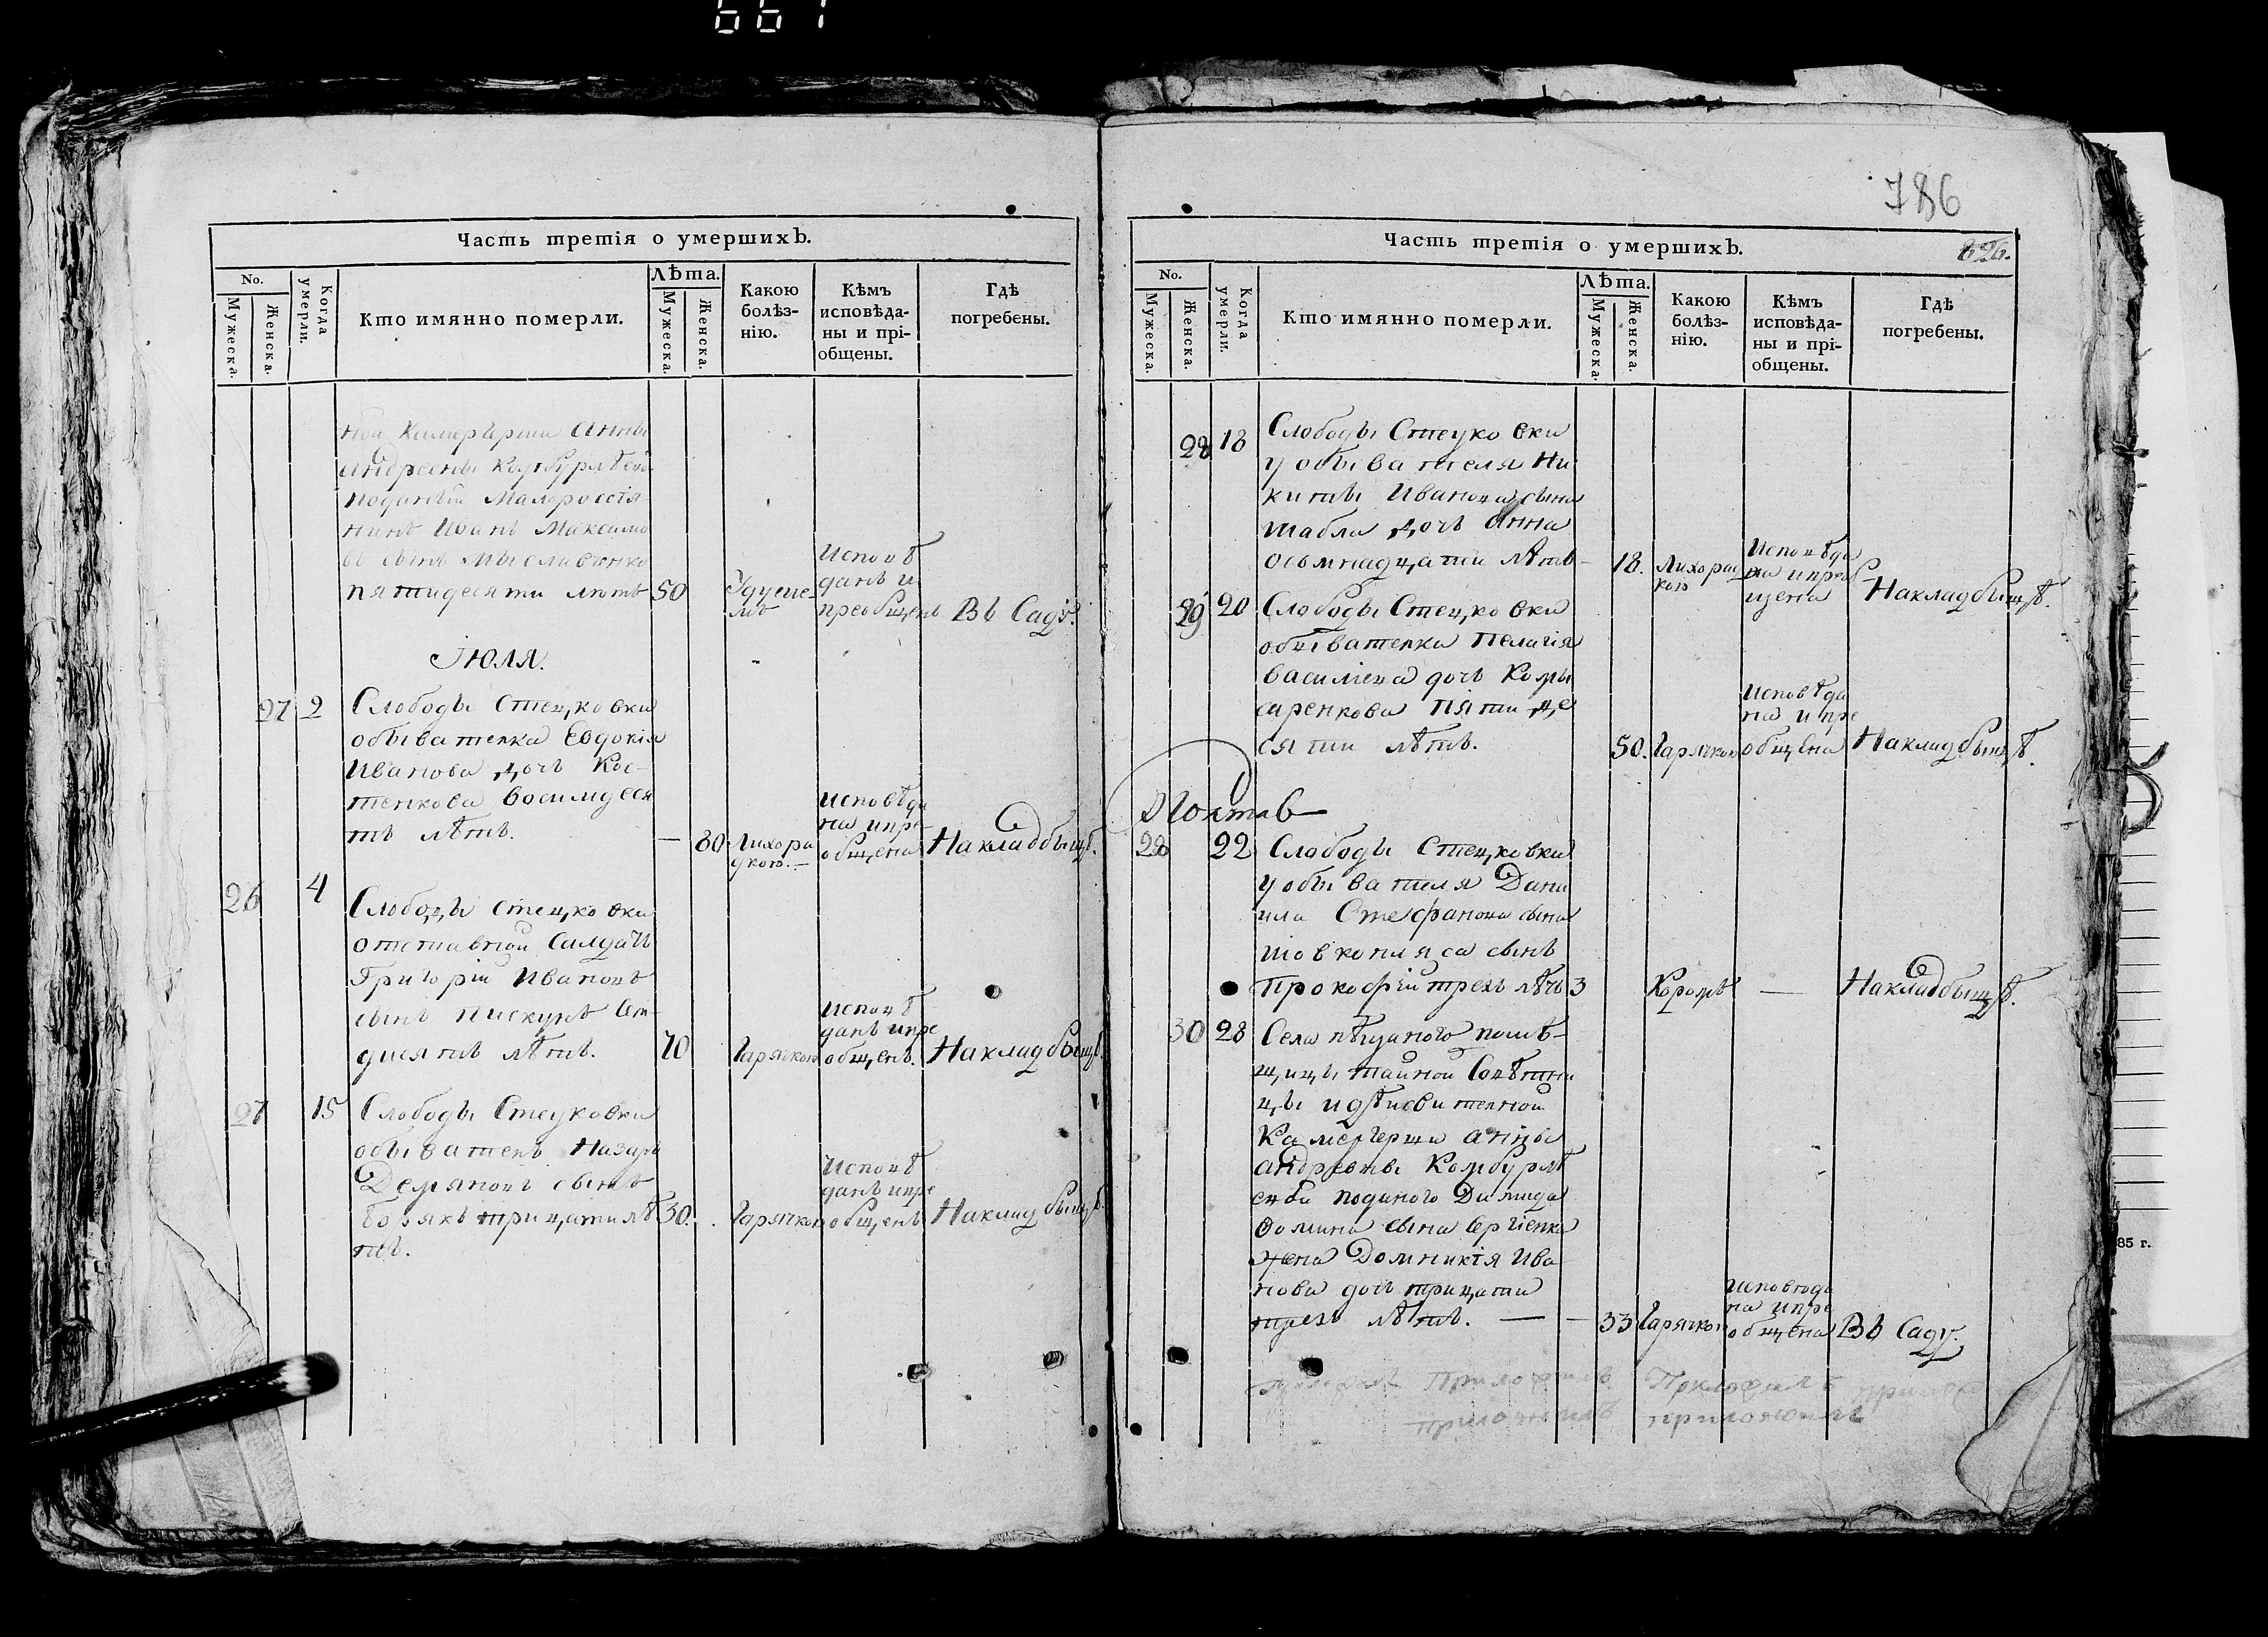 661
Часть третія о умершихЪ.
No.
Мужеска.
Женска.
Когда умерли.
Кто имянно померли.
Лѣта.
Мужеска.
Женска.
Какою
болѣз-
нію.
Кѣмъ
исповѣда-
ны и прі-
общены.
Гдѣ
погребены.
ной Камергерши Анны
Андреевны
Малоросстя-
нинъ Иванъ Максимо
въ сынъ Мысливченко
пятидесяти лѣтъ 50
Исповѣ
данъ и
преобщенъ
Въ Саду.
Іюля.
27 2 Слободы Стецковки
обывателка Евдокія
Иванова дочь Кос-
тенкова восимдеся
тъ лѣтъ. — 80 Лихора
дкою.—
Исповѣда
на и пре
общена
На кладбищѣ.
26 4 Слободы Стецковки
отставной Салдатъ
Григорій Ивановъ
сынъ Пискунъ Сем-
дисятъ лѣтъ. 70 Гарячкою
Исповѣ
данъ и пре
общенъ.
На кладбищѣ.
27 15 Слободы Стецковки
обыватель Назаръ
Демяновъ сынъ
трицати лѣ 30. Гарячкою
тъ.
Исповѣ
данъ и пре
общенъ
На кладбищѣ.
786
626.
Часть третія о умершихЪ.
No.
Мужеска.
Женска.
Когда умерли.
Кто имянно померли.
Лѣта.
Мужеска.
Женска.
Какою
болѣз-
нію.
Кѣмъ
исповѣда-
ны и прі-
общены.
Гдѣ
погребены.
28 18 Слободы Стецковки
у обывателя Ни
киты Иванова сына
Шабли дочь Анна
осьмнадцати лѣтъ - 18. Лихорад
кою
Исповѣда
на и преоб
щена
На кладбищѣ.
29 20 Слободы Стецковки
обывателка Пелагія
Василіева дочь Комы
саренкова пяти де
сяти лѣтъ. 50. Гарячкою
Исповѣда
на и пре
общена
На кладбищѣ.
28 22 Слободы Стецковки
у обывателя Дани
ила Стефанова сына
Шовкопляса сынъ
Прокофій трехъ лѣтъ 3 — На кладбищѣ.
30 28 Села пѣщаного помѣ-
щицы тайной Совѣтни
цы и дѣисвителной
Камергерши Анны
Андревны Комбурлѣ
евой поданого Димида
Фомина сына Сергіенка
жена Домникія Ива
нова дочь трицати
трехъ лѣтъ. — — 33 Гарячкою
Исповѣда
на и пре
общена
Въ Саду.
приложилъ приложилъ
85 г.